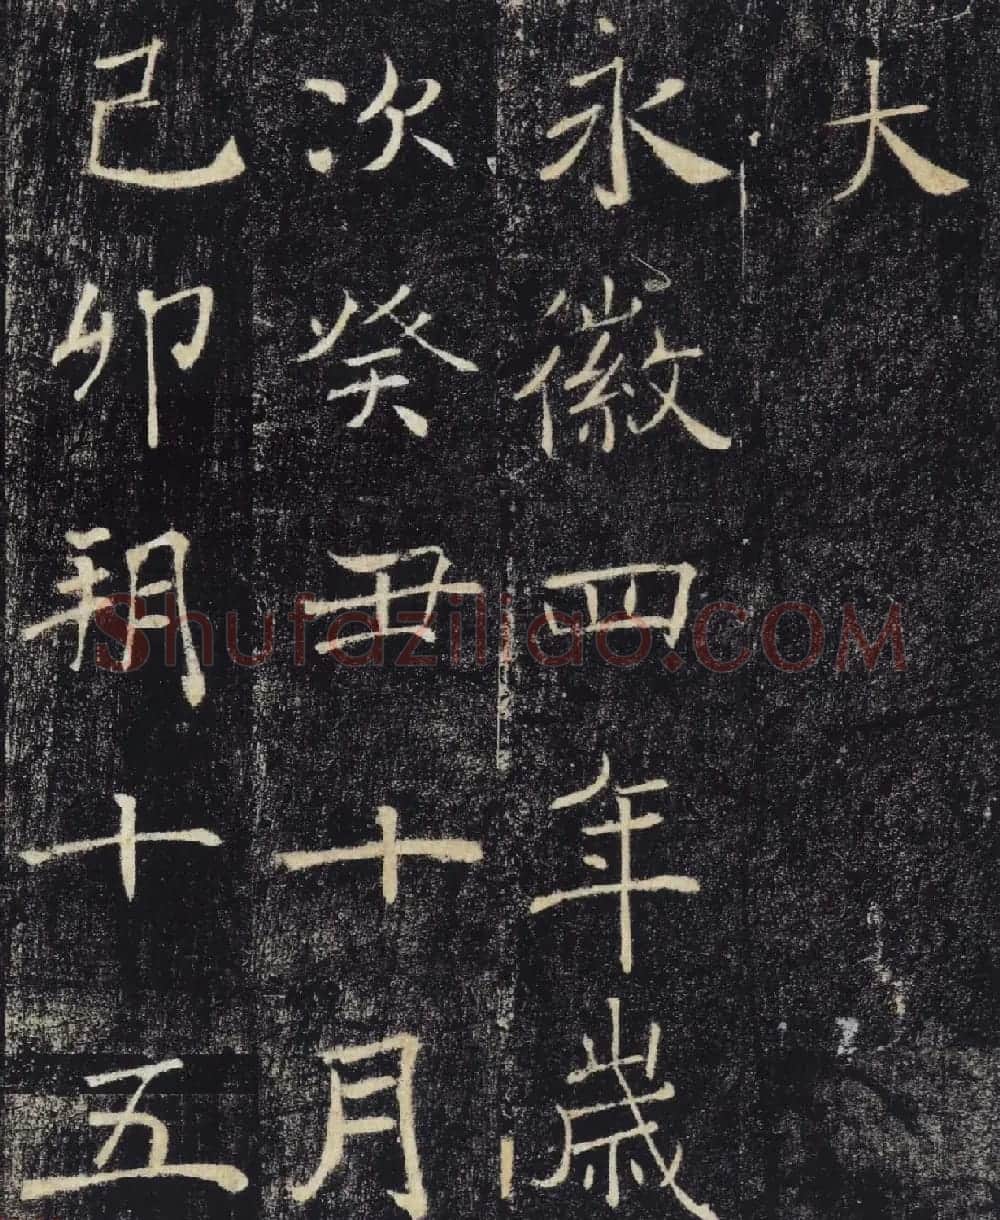 大
永徽四年歲
次癸丑十月
己卯朔十五
Shufaziliao.COM